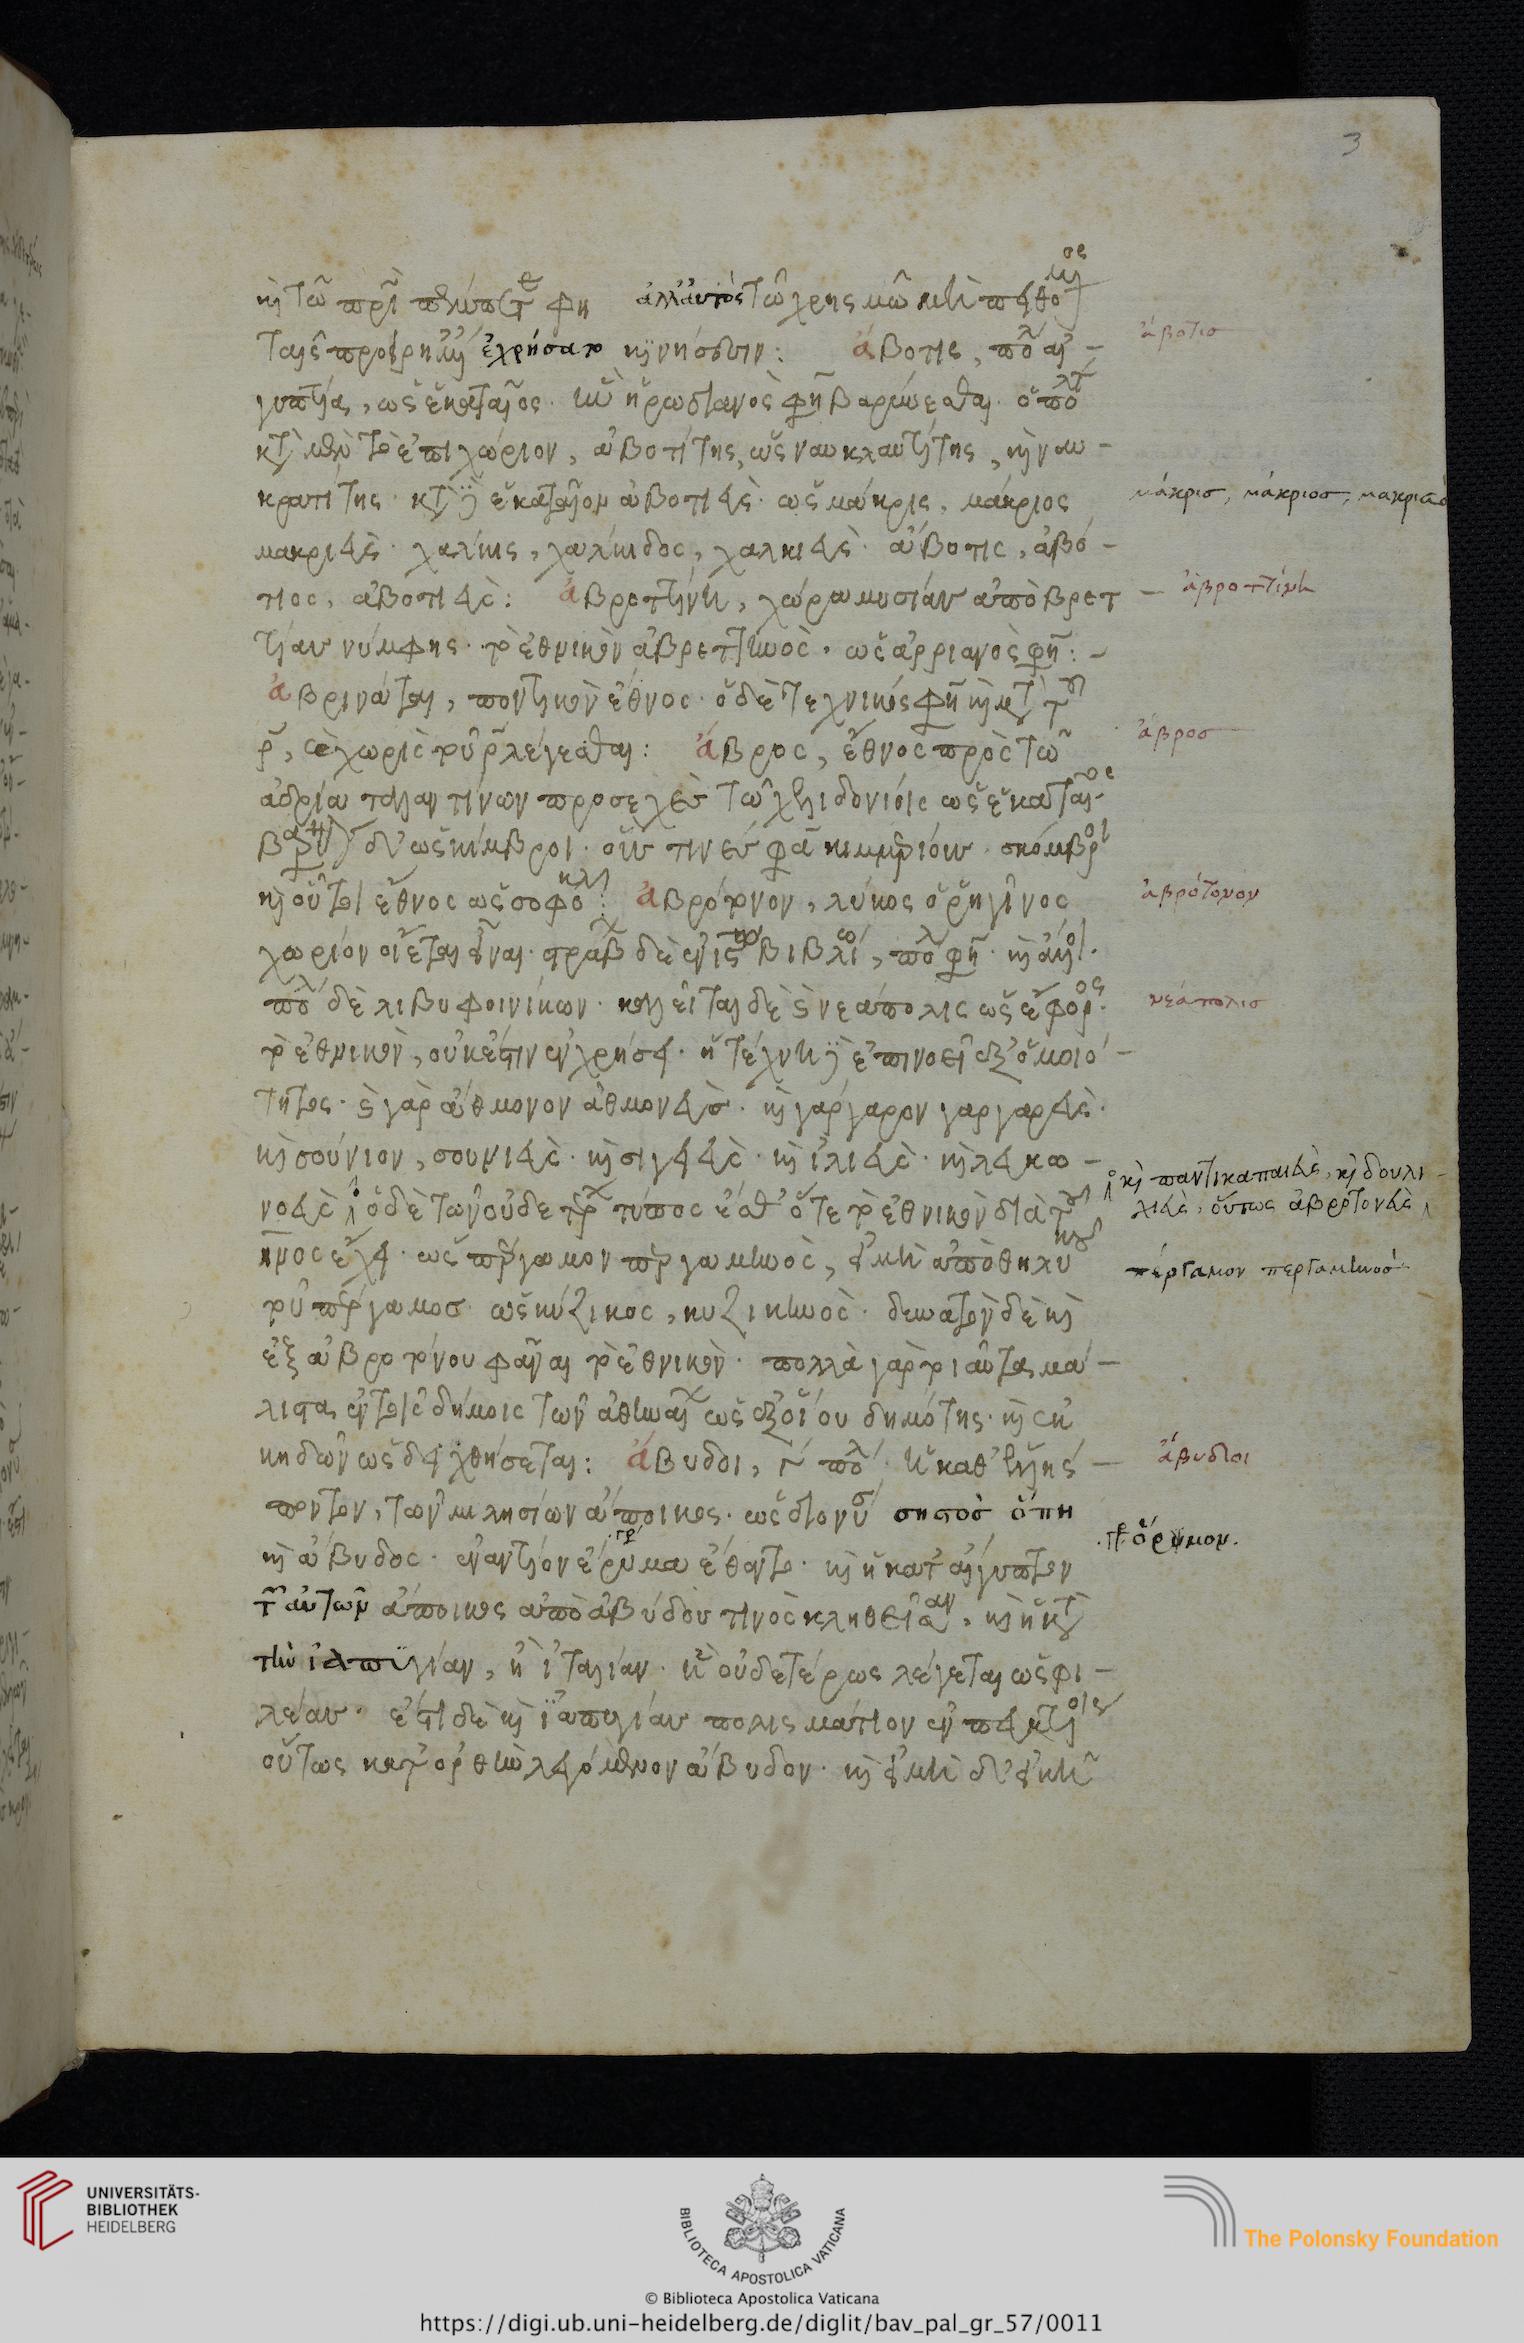 3
καὶ τῶ φη ἀλλ' αὐτὸς τῶ χρησμῶ μὴ
ταῖς προειρημέναις ἐχρήσατο καὶ νήσοσιν: ἄβοτις, πόλις αἰ-
γυπτία, ὡς ἑκαταῖος. ἣν ἡρωδιανὸς φησὶ βαρύνεσθαι. ὁ πολίτης
κατὰ μὲν τὸ ἐπιχώριον, ἀβοτίτης, ὡς ναυκλαυτίτης, καὶ ναυ-
κρατίτης. κατὰ δὲ ἑκαταῖον ἀβοτιεὺς. ὡς μάκρις, μάκριος
μακριεὺς. χαλκὶς, χαλκίδος, χαλκιδεὺς. ἄβοτις, ἀβό-
τιος, ἀβοτιεὺς: ἀβρεττήνη, χώρα μυσίας ἀπὸ βρετ
τίας νύμφης. τὸ ἐθνικὸν ἀβρεττηνὸς. ὡς ἀρριανὸς φησὶ: -
ἀβρινάται, ποντικὸν ἔθνος. ὁ δὲ τεχνικός φησὶ καὶ μετὰ τοῦ
ρ, καὶ χωρὶς τοῦ ρ λέγεσθαι: ἄβρος, ἔθνος πρὸς τῶ
ἀδρία ταλαντίνων προσεχὲς τῶ χελιδονίοις ὡς ἑκαταῖος
δὲ ὡς κίμβροι. οὕς τινές φασι κιμμερίους. σκόμβροι
καὶ οὗτοι ἔθνος ὡς σοφοκλῆς: ἀβρότονον, λύκος ὁ ῥηγῖνος
χωρίον οἴεται εἶναι. στράβων δὲ ἐν βιβλίω, πόλιν φησὶ.
πόλις δὲ λιβυφοινίκων. καλεῖται δὲ καὶ νεάπολις ὡς ἔφορος.
τὸ ἐθνικὸν, οὐκέστιν ἐν χρήσει. ἡ τέχνη δὲ ἐπινοεῖ ἐξ ὁμοιό-
τητος. καὶ γὰρ ἄθμονον ἀθμονεὺς. καὶ γάργαρον γαργαρεὺς.
καὶ σούνιον, σουνιεὺς. καὶ σιγειεὺς. καὶ ἰλιεὺς. καὶ λακω-
νεὺς ὁ δὲ τῶν οὐδετέρων τύπος ἐσθ' ὅτε τὸ ἐθνικὸν διὰ τοῦ
ηνος ἔχει. ὡς πέργαμον περγαμηνὸς, εἰ μὴ ἀπὸ θηλυκοῦ
τοῦ πέργαμος ὡς κύζικος, κυζικηνὸς. δυνατὸν δὲ καὶ
ἐξ ἀβροτόνου φᾶναι τὸ ἐθνικὸν. πολλὰ γὰρ τοιαῦτα μά-
λιστα ἐν τοῖς δήμοις τῶν ἀθηναίων ὡς ἐξ οἴου δημότης. καὶ ἐκ
κηδῶν ὡς δειχθήσεται: ἄβυδοι, γ πόλεις. ἡ καθ' ἑλλής-
ποντον, τῶν μιλησίων ἄποικος. ὡς διονύ σηστὸς ὅπη
καὶ ἄβυδος. ἐναντίον ἔρυμα ἔθεντο. καὶ ἡ κατ' αἴγυπτον
τῶν αὐτῶν ἄποικος ἀπὸ ἀβύδου τινὸς κληθεῖσαν, καὶ ἡ κατὰ
τὴν ἰαπυγίαν, ἢ ἰταλίαν. ἣ οὐδετέρως λέγεται ὡς φι-
λέας. ἔστι δὲ καὶ ἰαπυγίας πόλις μάτιον ἐν πευκετίοις
οὕτως κατ' ὀρθὴν λεγόμενον ἄβυδον. καὶ εἰ μὴ
ἄβοτισ
μάκρισ, μάκριοσ, μακριεὺσ
ἀβρεττίνη
ἄβροσ
ἀβρότονον
νεάπολισ
καὶ παντικαπαιεὺς, καὶ δουλι-
χιεὺς, οὕτως ἀβροτονεὺς
πέργαμον περγαμηνοσ
ἄβυδοι
γρ ὅρισμον.
UNIVERSITÄTS-
BIBLIOTHEK
HEIDELBERG
BIBLIOTECA APOSTOLICA VATICANA
The Polonsky Foundation
© Biblioteca Apostolica Vaticana
https://digi.ub.uni-heidelberg.de/diglit/bav_pal_gr_57/0011